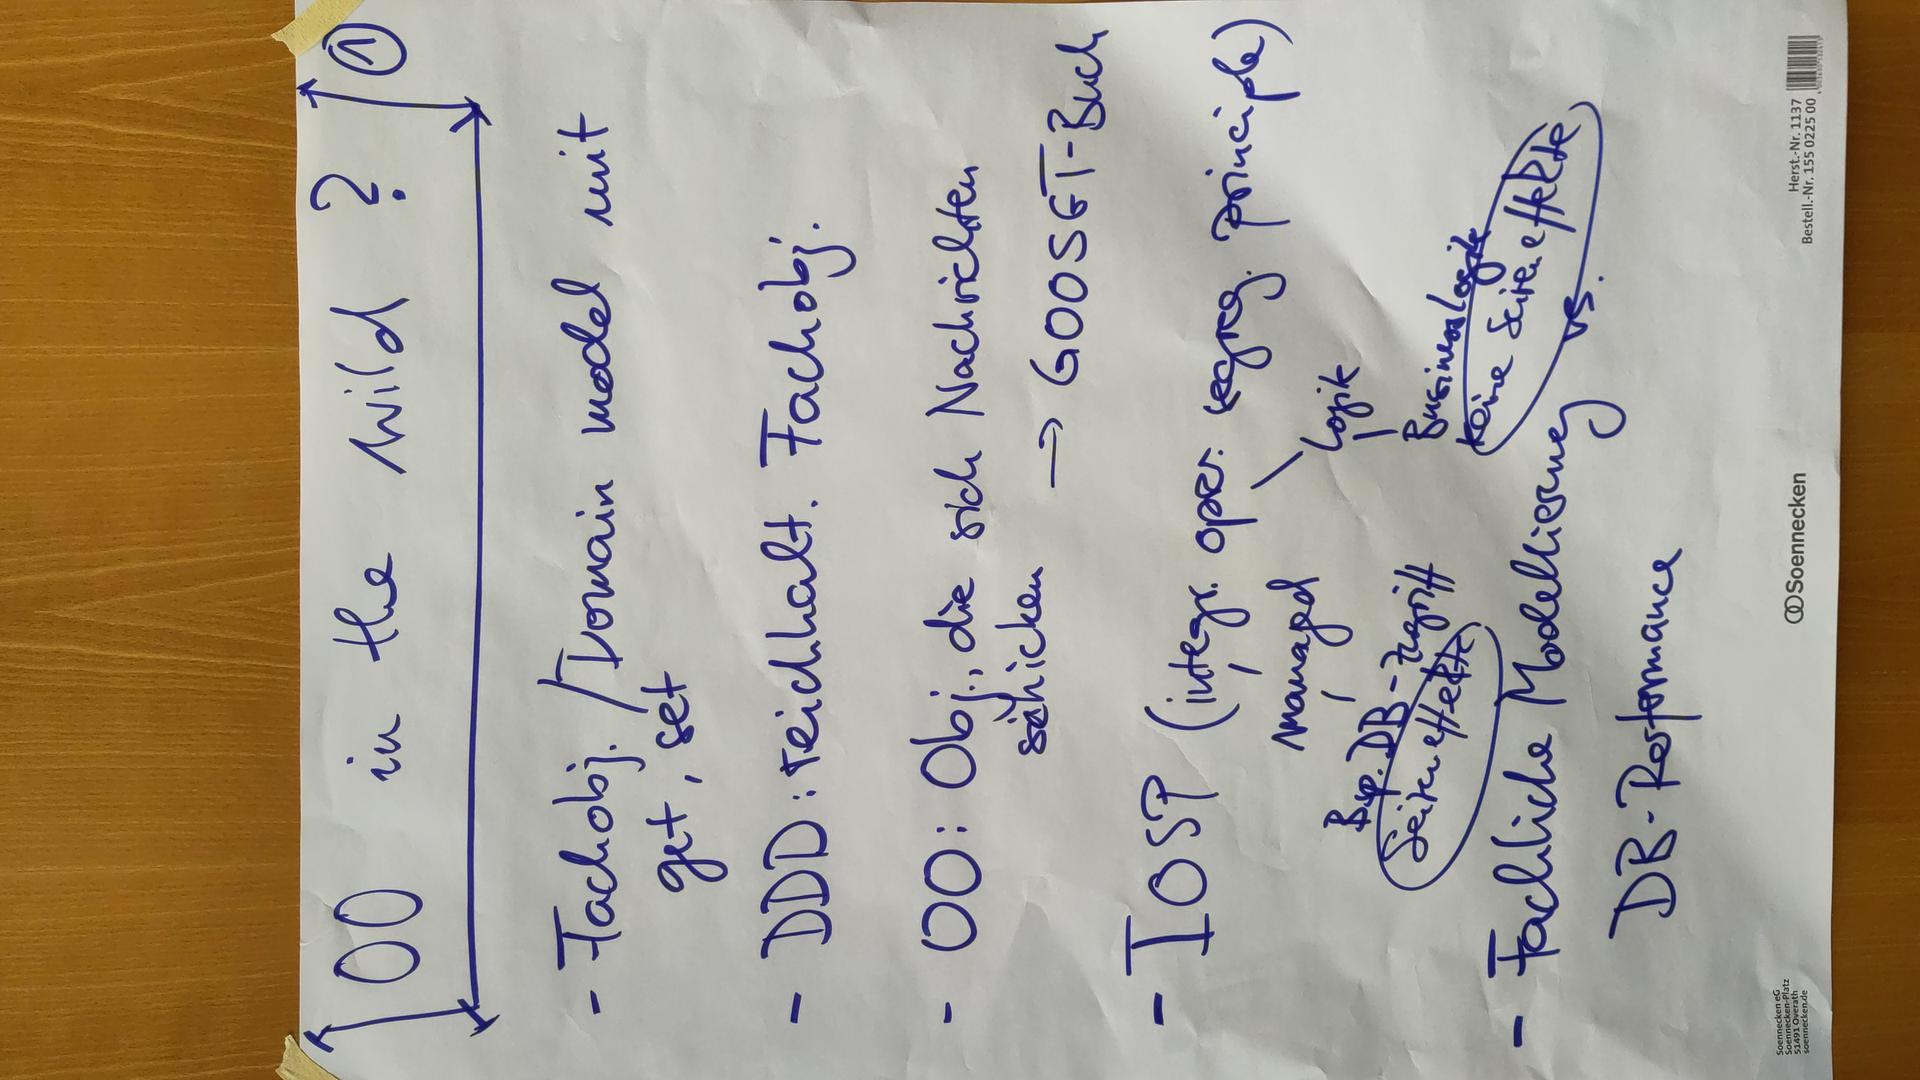 OO in the wild ? ①
- Fachobj. / Domain model mit
get, set
- DDD: reichhalt. Fachobj.
- OO: Obj., die sich Nachrichten
schicken → GOOSGT-Buch
- IOSP (integr. oper. segreg. principle)
managed Logik
Bsp. DB-Zugriff Businesslogik
Seiteneffekte keine Seiteneffekte
- Fachliche Modellierung vs.
DB-Performance
Soennecken eG
Soennecken-Platz
51491 Overath
soennecken.de
Soennecken
Herst.-Nr. 1137
Bestell.-Nr. 155 0225 00